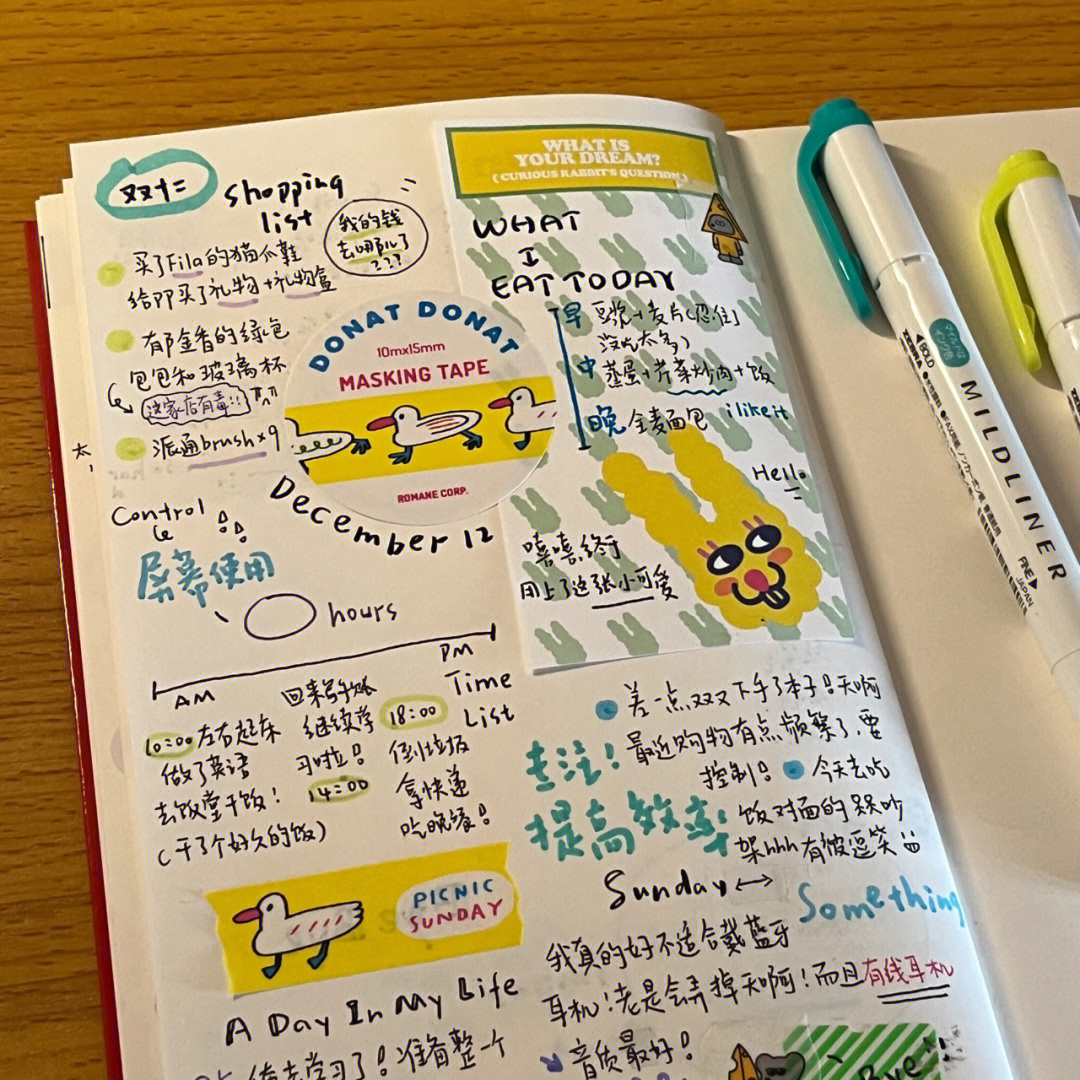 双十二
shopping
list
我的钱
去哪儿了
???
买了Fila的猫爪鞋
给叩买了礼物+礼物盒
郁金香的绿色
包包和玻璃杯
这家店有毒!!
派通brush×9
DONAT DONAT
10mx15mm
MASKING TAPE
ROMANE CORP.
December 12
Control
屏幕使用
hours
AM
PM
Time
List
10:00左右起床
做了英语
去饭堂干饭!
(干了个好久的饭)
回来写手账
继续学
习啦!
14:00
18:00
倒垃圾
拿快递
吃晚餐!
PICNIC
SUNDAY
A Day In My Life
学习了!准备整一个
WHAT IS
YOUR DREAM?
( CURIOUS RABBIT'S QUESTION )
WHAT
I
EAT TODAY
早 豆浆+麦片(忍住
没吃太多)
中 蒸蛋+芹菜炒肉+饭
晚 全麦面包 i like it
Hello
嘻嘻终于
用上了这张小可爱
差一点双又下手了本子!天啊
最近购物有点频繁了,要
控制!
今天去吃
饭对面的
架hhh有被逗笑
专注!
提高效率
Sunday
Something
我真的好不适合戴蓝牙
耳机!老是会弄掉天啊!而且有线耳机
音质最好!
Bye
太
BOLD
MILDLINER
FINE
JAPAN